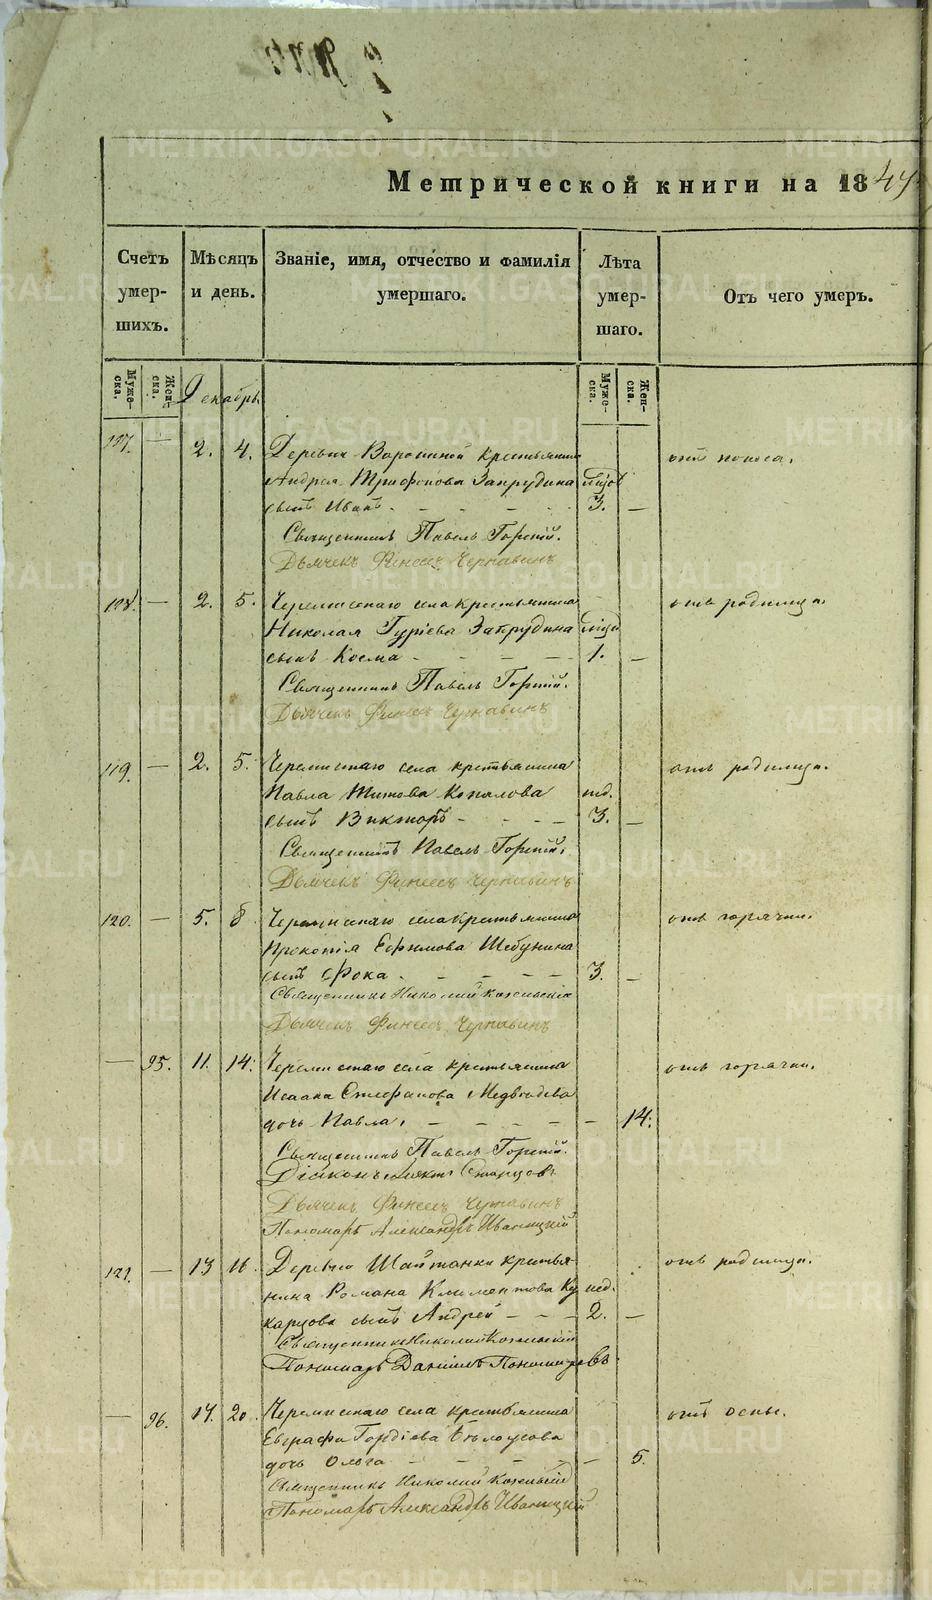 Метрической книги на 1847
Счетъ умер-шихъ.
Мѣсяцъ и день.
Званіе, имя, отчество и фамилія умершаго.
Лѣта умер-шаго.
Отъ чего умеръ.
Муже-ска. Жен-ска. Декабрь Муже-ска. Жен-ска.
117. — 2. 4. Деревни Ворониной крестьянина отъ поноса.
Андрея Трифонова Запрудина
сынъ Иванъ. 3. —
Священникъ Павелъ Горный.
Дьячекъ Финеесъ Чернавинъ
118. — 2. 5. Черемисскаго села крестьянина отъ родимца.
Николая Гуріева Запрудина
сынъ Косма 1. —
Священникъ Павелъ Горный.
Дьячекъ Финеесъ Чернавинъ
119. — 2. 5. Черемисскаго села крестьянина отъ родимца.
Павла Титова Копалова нед.
сынъ Викторъ 3. —
Священникъ Павелъ Горный.
Дьячекъ Финеесъ Чернавинъ
120. — 5. 8. Черемисскаго села крестьянина отъ горячки.
Прокопія Ефимова Шебунина
сынъ Фока. 3. —
Священникъ Николай
Дьячекъ Финеесъ Чернавинъ
— 95. 11. 14. Черемисскаго села крестьянина отъ горячки.
Исаака Стефанова Медвѣдева
дочь Павла. — 14.
Священникъ Павелъ Горный.
Діаконъ Старцовъ
Дьячекъ Финеесъ Чернавинъ
Пономарь Александръ Иваницкій
121. — 13 16. Деревни Шайтанки крестья- отъ родимца.
нина Романа Климентова Ку- нед.
карцова сынъ Андрей 2. —
Священникъ Николай
Пономарь Даніилъ Пономаревъ
— 96. 17. 20. Черемисскаго села крестьянина отъ оспы.
Евграфа Гордіева Бѣлоусова
дочь Ольга — 5.
Священникъ Николай
Пономарь Александръ Иваницкій
METRIKI.GASO-URAL.RU